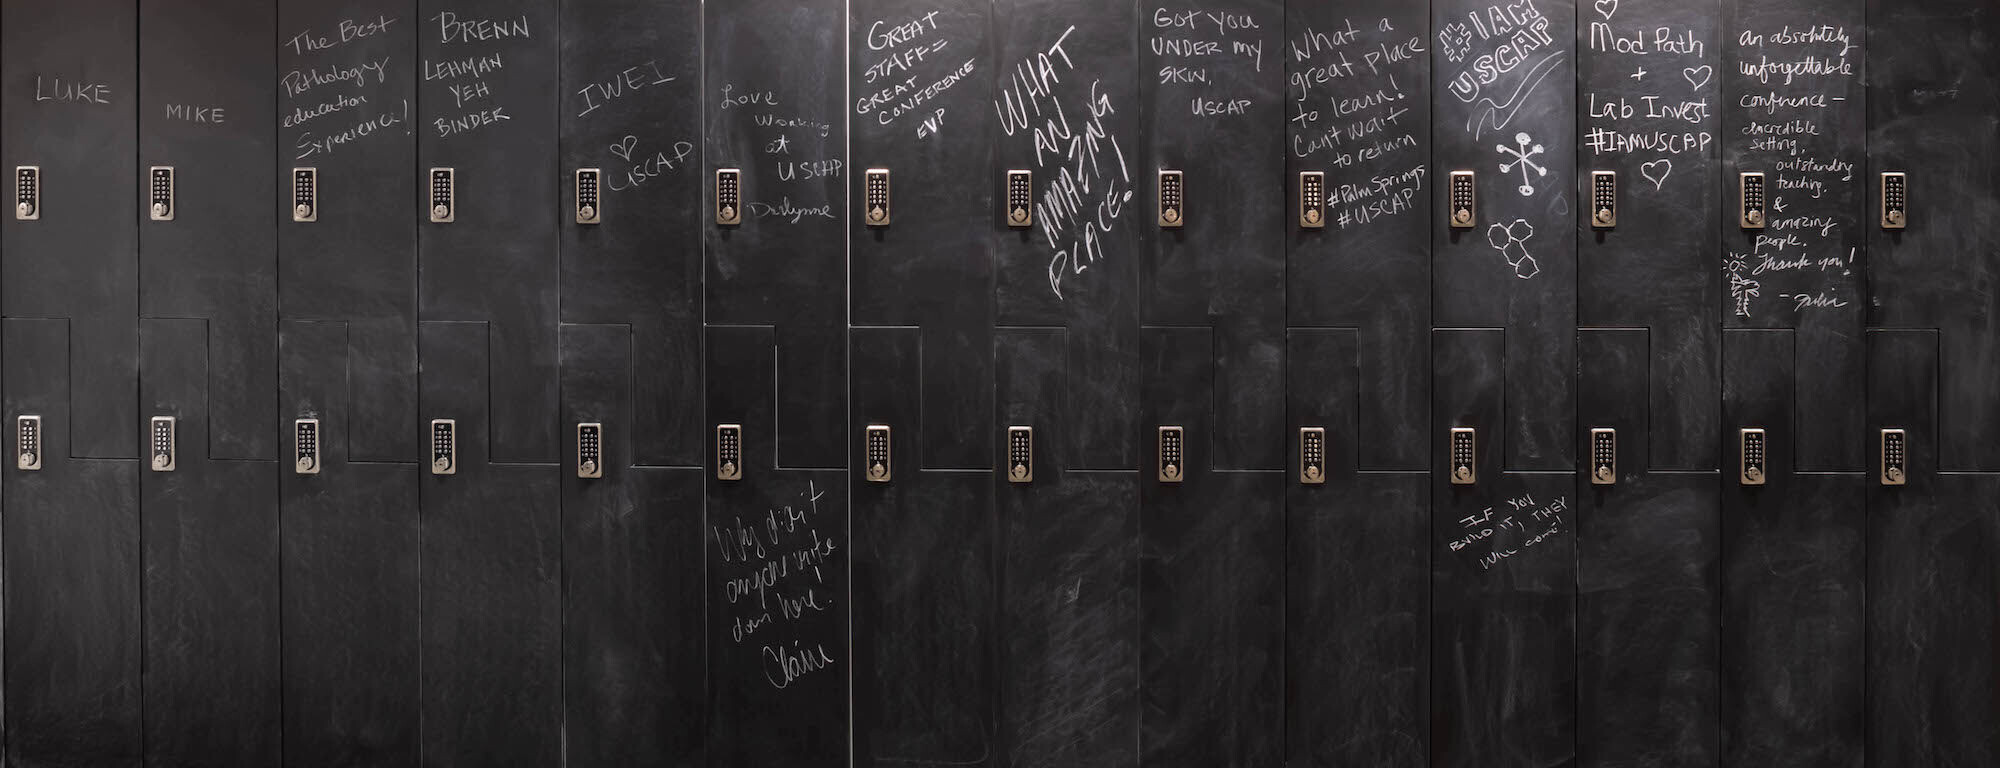 LUKE
MIKE
The Best
Pathology
education
Experience!
BRENN
LEHMAN
YEH
BINDER
IWEI
♡
USCAP
Love
Working
at
USCAP
Darlynne
GREAT
STAFF =
GREAT
CONFERENCE
EVP
WHAT
AN
AMAZING
PLACE!
GOT YOU
UNDER my
SKIN,
USCAP
What a
great place
to learn!
Can't wait
to return
#PalmSprings
#USCAP
#IAM
USCAP
Mod Path
+
Lab Invest
#IAMUSCAP
An absolutely
unforgettable
conference -
incredible
setting,
outstanding
teaching.
&
amazing
people.
Thank you!
- Julia
Why didn't
anyone write
down here!
Claire
IF YOU
BUILD IT, THEY
WILL COME!